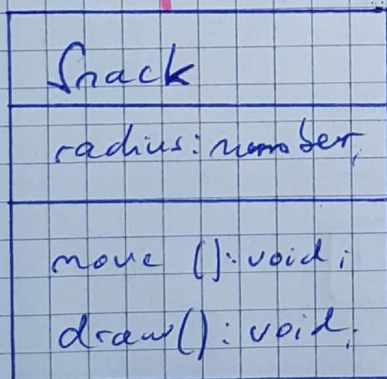 Snack
radius: number;
move (): void;
draw(): void;